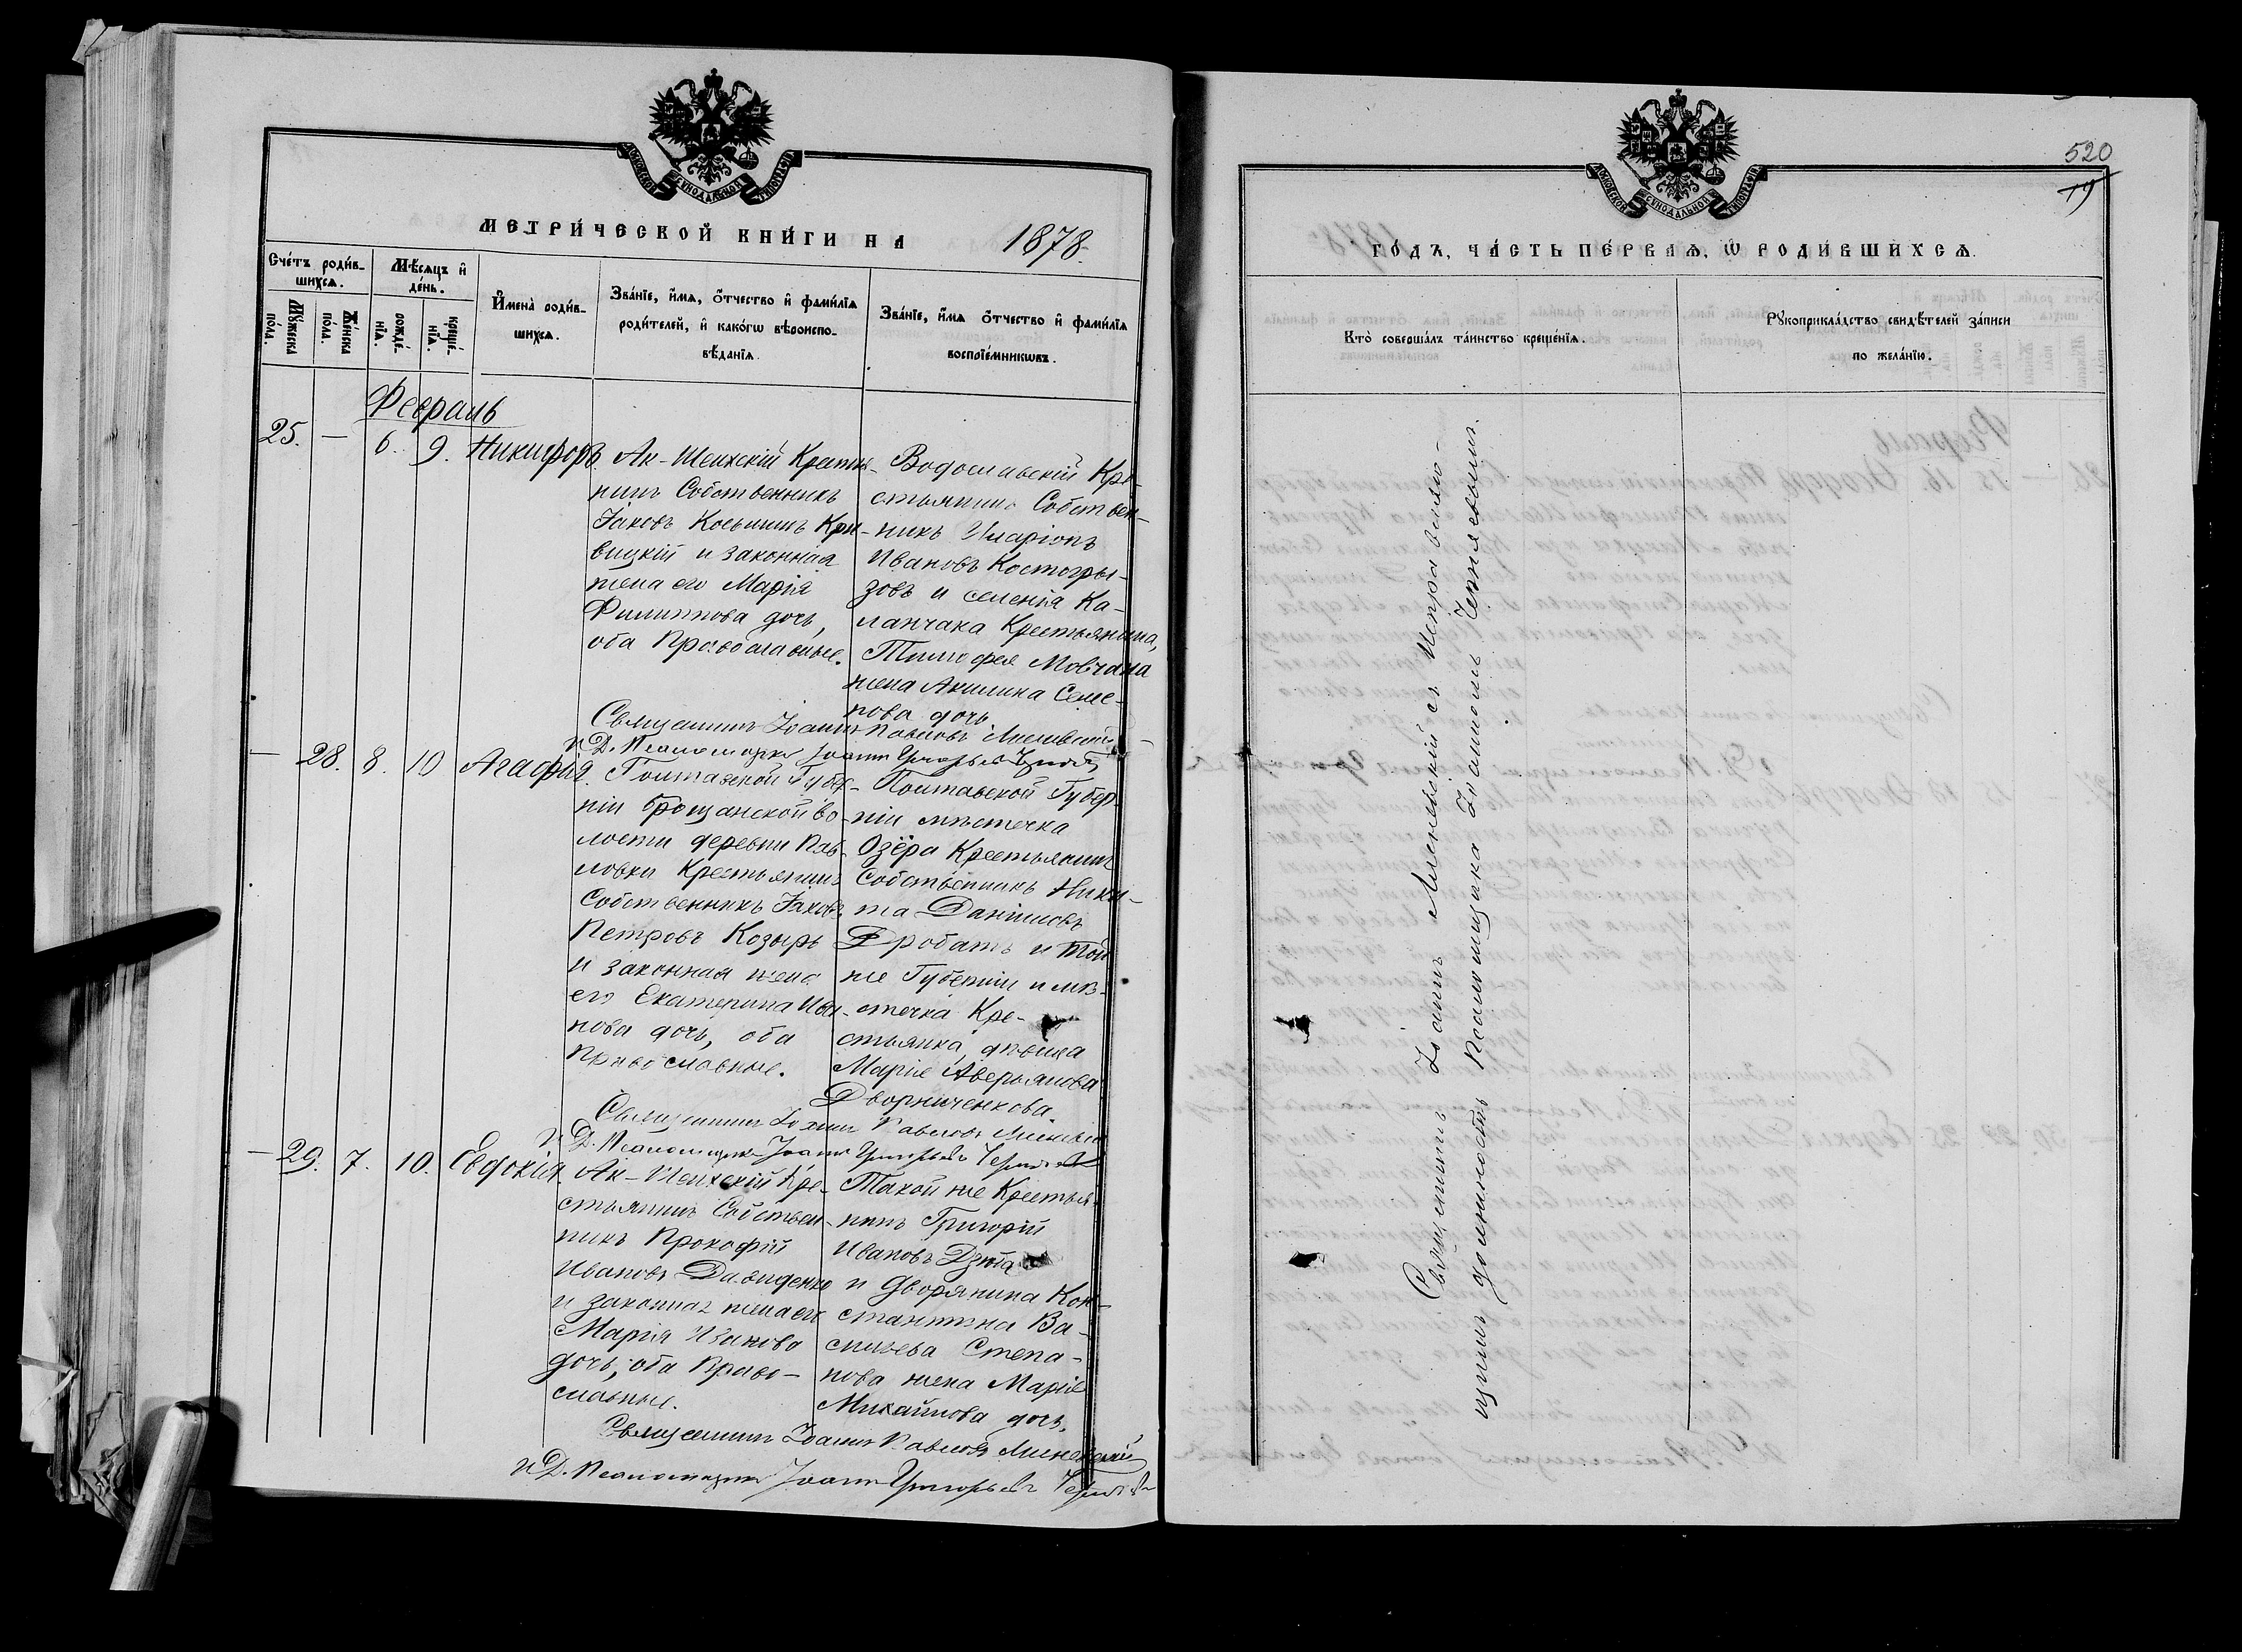 МОСКОВСКОЙ СѴНОДАЛЬНОЙ ТИПОГРАФІИ
МЕТРИ́ЧЕСКОЙ КНИ́ГИ НА 1878.
Сче́тъ роди́в-
шихсѧ.
Мѣ́сѧцъ и҆
де́нь.
Мꙋ́жеска
по́ла.
Же́нска
по́ла.
рожде́-
нїѧ.
креще́-
нїѧ.
И҆мена̀ роди́в-
шихсѧ.
Зва́нїе, и҆́мѧ, ѻ҆́тчество и҆ фами́лїѧ
роди́телей, и҆ како́гѡ вѣроиспо-
вѣ́данїѧ.
Зва́нїе, и҆́мѧ ѻ҆́тчество и҆ фами́лїѧ
воспрїе́мникѡвъ.
Февраль
25. — 6. 9. Никифоръ
Ак-Шеихскій Крестья-
нинъ Собственникъ
Іаковъ Косьминъ Кри-
вицкій и законная
жена его Марія
Филиппова дочь,
оба Православные.
Водославскій Кре-
стьянинъ Собствен-
никъ Иларіонъ
Ивановъ Костогры-
зовъ и селенія Ка-
ланчака Крестьянина,
Тимофея Мовчана
жена Акилина Семе-
нова дочь
Священникъ Іоаннъ Павловъ
И Д. Псаломщика Іоаннъ Григорьевъ
— 28. 8. 10 Агафія.
Полтавской Губер-
ніи во-
лости деревни Пав-
ловки Крестьянинъ
Собственникъ Іаковъ
Петровъ Козырь
и законная жена
его Екатерина Ива-
нова дочь, оба
Православные.
Полтавской Губер-
ніи мѣстечка
Озёра Крестьянинъ
Собственникъ Ники-
та Даніиловъ
Дробатъ и той
же Губерніи и мѣ-
стечка Кре-
стьянка, дѣвица
Марія Аверьянова
Дворниченкова.
Священникъ Іоаннъ Павловъ
И Д. Псаломщика Іоаннъ Григорьевъ
— 29. 7. 10. Евдокія.
Ак-Шеихскій Кре-
стьянинъ Собствен-
никъ Прокофій
Ивановъ Давиденко
и законная жена его
Марія Иванова
дочь, оба Право-
славные.
Такой же Крестья-
нинъ Григорій
Ивановъ Дзюба
и дворянина Кон-
стантина Ва-
сильева Степа-
нова жена Марія
Михайлова дочь.
Священникъ Іоаннъ Павловъ
И Д. Псаломщика Іоаннъ Григорьевъ
520
19
МОСКОВСКОЙ СѴНОДАЛЬНОЙ ТИПОГРАФІИ
ГО́ДЪ, ЧА́СТЬ ПЕ́РВАѦ, Ѡ҆ РОДИ́ВШИХСѦ.
Кто̀ соверша́лъ та́инство креще́нїѧ.
Рꙋкоприкла́дство свидѣ́телей за́писи
по жела́нїю.
Священникъ Іоаннъ съ Исправляю-
щимъ должность Псаломщика Іоанномъ